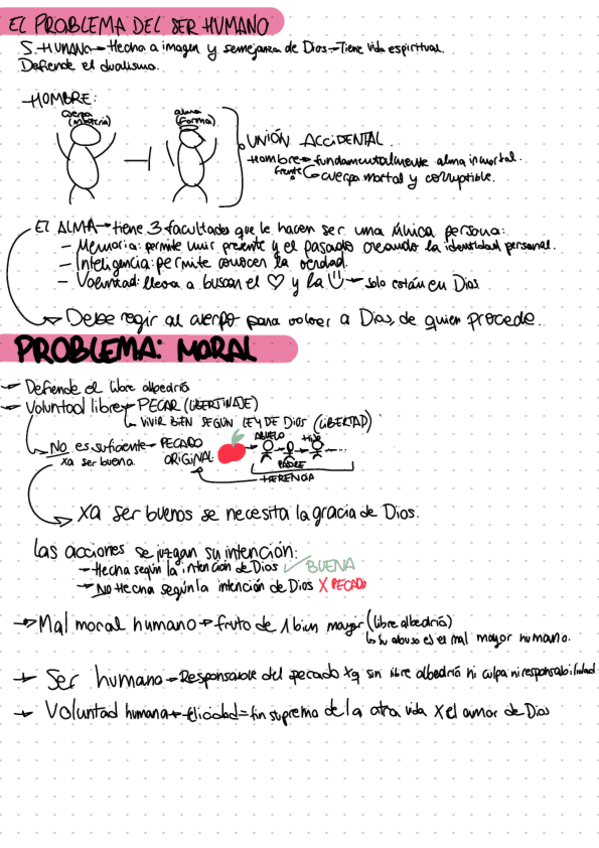 EL PROBLEMA DEL SER HUMANO
S. HUMANO → Hecho a imagen y semejanza de Dios → Tiene vida espiritual.
Defiende el dualismo.
→ HOMBRE:
cuerpo (materia)
alma (forma)
UNIÓN ACCIDENTAL.
Hombre → fundamentalmente alma inmortal.
frente → cuerpo mortal y corruptible.
El ALMA → tiene 3 facultades que le hacen ser una única persona:
- Memoria: permite unir presente y el pasado creando la identidad personal.
- Inteligencia: permite conocer la verdad.
- Voluntad: lleva a buscar el ♡ y la ☺ → solo están en Dios
→ Debe regir al cuerpo para volver a Dios, de quien procede.
PROBLEMA: MORAL
→ Defiende el libre albedrío
→ Voluntad libre → PECAR (LIBERTINAJE)
→ VIVIR BIEN SEGÚN LEY DE DIOS (LIBERTAD)
→ NO es suficiente → PECADO ORIGINAL
xa ser buena.
ABUELO
PADRE
HIJO
...
HERENCIA
→ Xa ser buenos se necesita la gracia de Dios.
Las acciones se juzgan su intención:
→ Hecha según la intención de Dios ✓ BUENA
→ NO Hecha según la intención de Dios X PECADO
→ Mal moral humano → fruto de 1 bien mayor (libre albedrío)
↳ Su abuso es el mal mayor humano.
→ Ser humano → Responsable del pecado xq sin libre albedrío ni culpa ni responsabilidad
→ Voluntad humana → felicidad = fin supremo de la otra vida X el amor de Dios